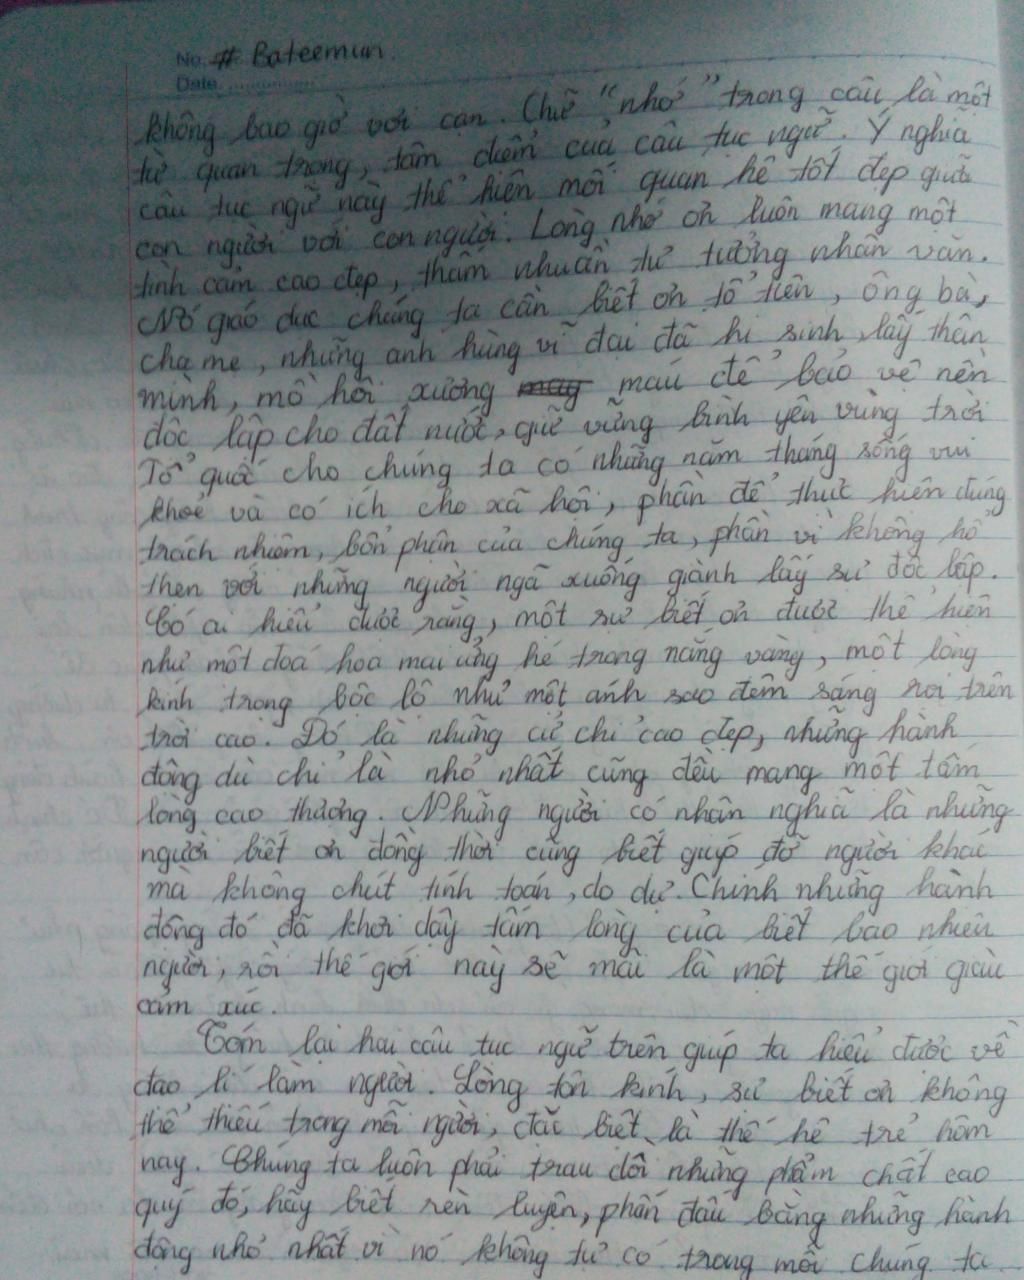 No. # Bateemun
Date
không bao giờ vơi cạn. Chữ "nhớ" trong câu là một
từ quan trọng, tâm điểm của câu tục ngữ. Ý nghĩa
câu tục ngữ này thể hiện mối quan hệ tốt đẹp giữa
con người với con người. Lòng nhớ ơn luôn mang một
tình cảm cao đẹp, thấm nhuần tư tưởng nhân văn.
Nó giáo dục chúng ta cần biết ơn tổ tiên, ông bà,
cha mẹ, những anh hùng vĩ đại đã hi sinh, lấy thân
mình, mồ hôi xương máu để bảo vệ nền
độc lập cho đất nước, giữ vững bình yên vùng trời
Tổ quốc cho chúng ta có những năm tháng sống vui
khoẻ và có ích cho xã hội, phần để thực hiện đúng
trách nhiệm, bổn phận của chúng ta, phần vì không hổ
thẹn với những người ngã xuống giành lấy sự độc lập.
Có ai hiểu được rằng, một sự biết ơn được thể hiện
như một đoá hoa mai ửng hé trong nắng vàng, một lòng
kính trọng bộc lộ như một ánh sao đêm sáng rọi trên
trời cao. Đó là những cử chỉ cao đẹp, những hành
động dù chỉ là nhỏ nhất cũng đều mang một tấm
lòng cao thượng. Những người có nhân nghĩa là những
người biết ơn đồng thời cũng biết giúp đỡ người khác
mà không chút tính toán, do dự. Chính những hành
động đó đã khơi dậy tấm lòng của biết bao nhiêu
người, rồi thế giới này sẽ mãi là một thế giới giàu
cảm xúc.
Tóm lại hai câu tục ngữ trên giúp ta hiểu được về
đạo lí làm người. Lòng tôn kính, sự biết ơn không
thể thiếu trong mỗi người, đặc biệt là thế hệ trẻ hôm
nay. Chúng ta luôn phải trau dồi những phẩm chất cao
quý đó, hãy biết rèn luyện, phấn đấu bằng những hành
động nhỏ nhất vì nó không tự có trong mỗi chúng ta